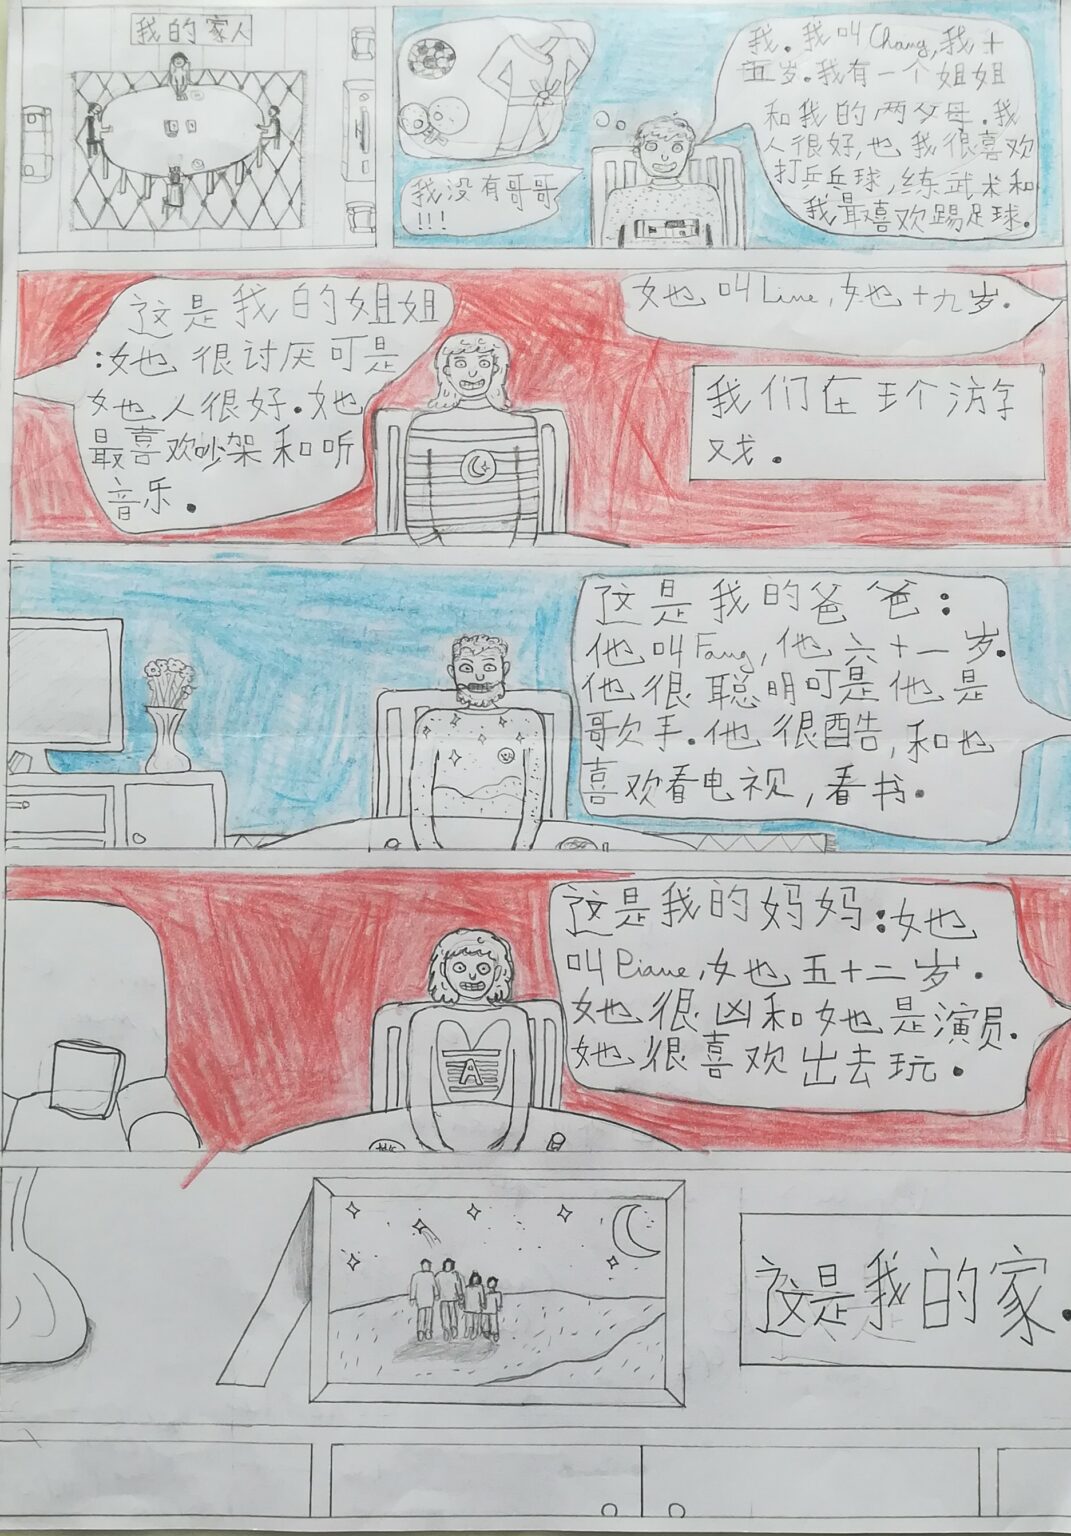 我的家人
我. 我叫Chang, 我十
五岁. 我有一个姐姐
和我的两父母. 我
人很好, 也我很喜欢
打乒乓球, 练武术和
我最喜欢踢足球.
我没有哥哥
!!!
这是我的姐姐
:她很讨厌可是
她人很好. 她
最喜欢吵架和听
音乐.
她叫Line, 她十九岁.
我们在王个游
戏.
这是我的爸爸:
他叫Fang, 他六十一岁.
他很聪明可是他是
歌手. 他很酷, 和也
喜欢看电视, 看书.
这是我的妈妈:她
叫Piane, 她五十二岁.
她很凶和她是演员.
她很喜欢出去玩.
A
这是我的家.